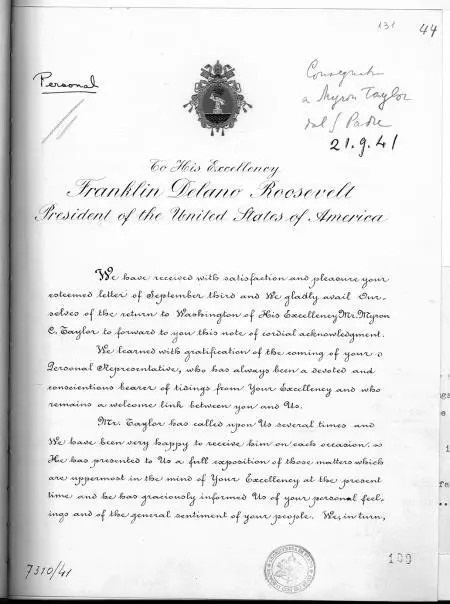 131 44
Personal
Consegnata
a Myron Taylor
dal S Padre
21.9.41
To His Excellency
Franklin Delano Roosevelt
President of the United States of America
We have received with satisfaction and pleasure your
esteemed letter of September third and We gladly avail Our-
selves of the return to Washington of His Excellency Mr. Myron
C. Taylor to forward to you this note of cordial acknowledgment.
We learned with gratification of the coming of your
Personal Representative, who has always been a devoted and
conscientious bearer of tidings from Your Excellency and who
remains a welcome link between you and Us.
Mr. Taylor has called upon Us several times and
We have been very happy to receive him on each occasion.
He has presented to Us a full exposition of those matters which
are uppermost in the mind of Your Excellency at the present
time and he has graciously informed Us of your personal feel-
ings and of the general sentiment of your people. We, in turn,
7310/41